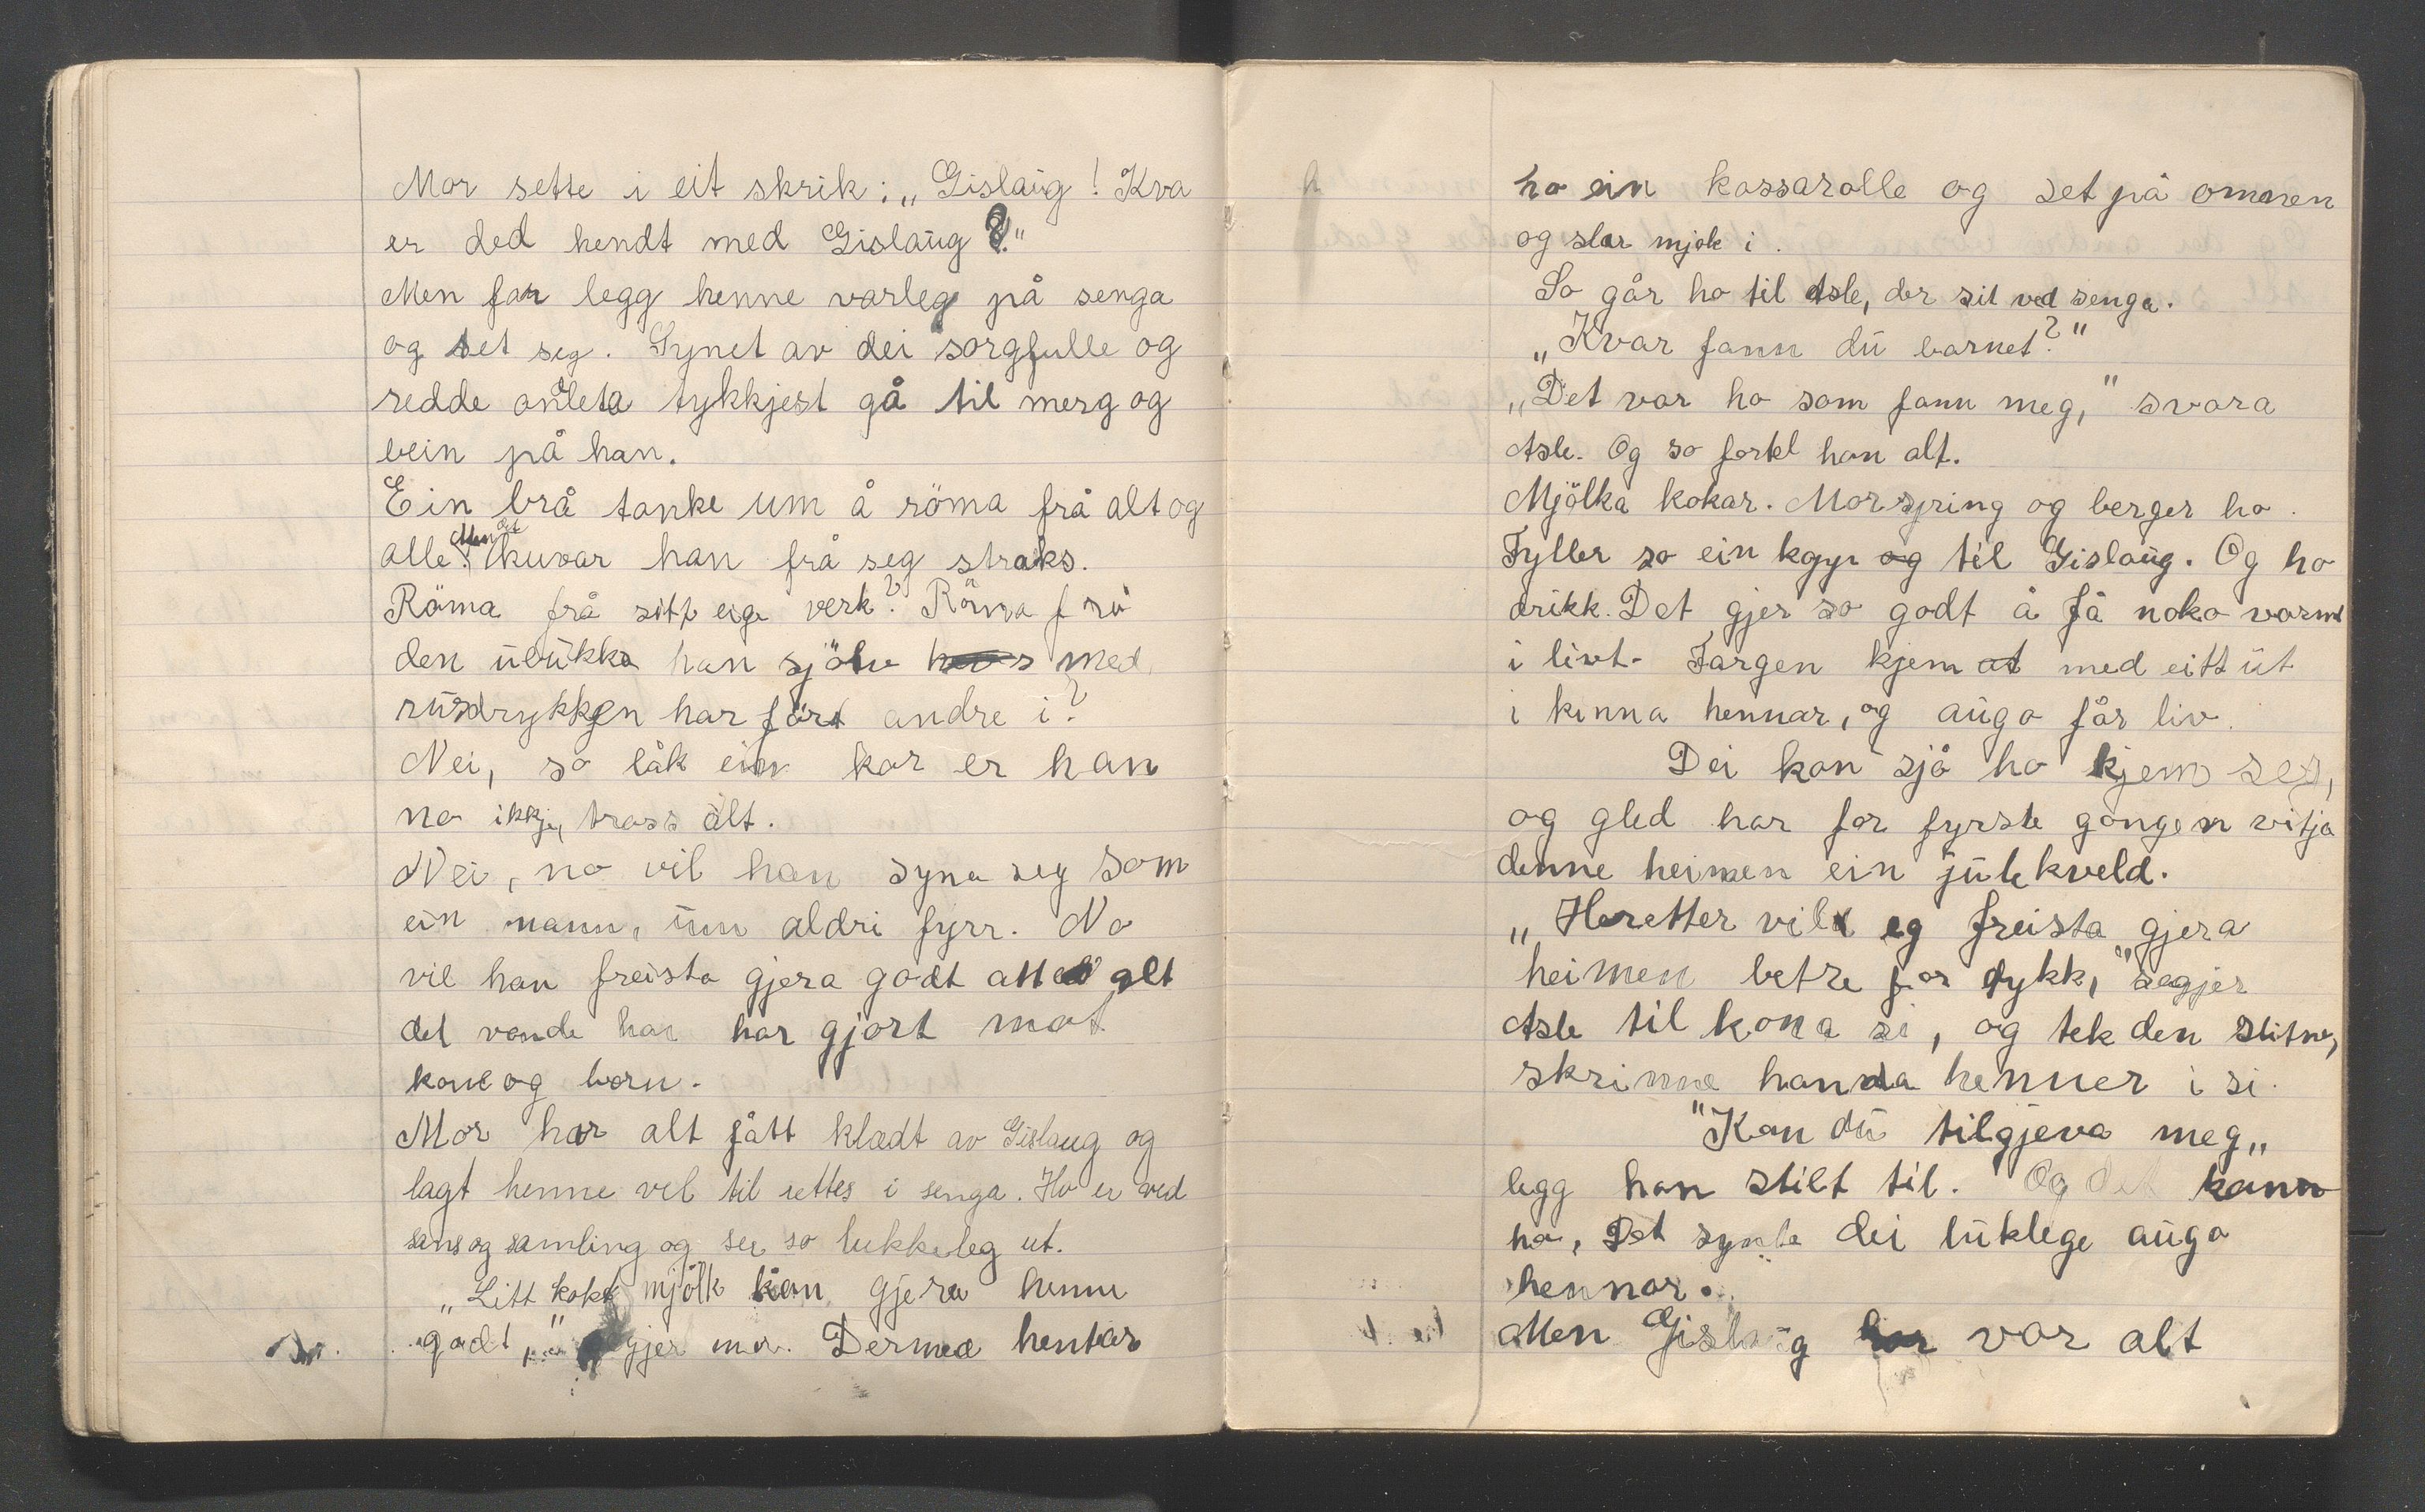 Mor sette i eit skrik: „Gislaug! Kva
er ded hendt med Gislaug?"
Men far legg henne varleg på senga
og set seg. Synet av dei sorgfulle og
redde andleta tykkjest gå til merg og
bein på han.
Ein brå tanke um å röma frå alt og
Men det
alle. kuvar han frå seg straks.
Röma frå sitt eige verk? Röma frå
den ulukka han sjölv med
rusdrykkjen har fört andre i?
Nei, so låk ein kar er han
no ikkje, trass alt.
Nei, no vil han syna seg som
ein mann, um aldri fyrr. No
vil han freista gjera godt att alt
det vonde han har gjort mot
kone og born.
Mor har alt fått klædt av Gislaug og
lagt henne vel til rettes i senga. Ho er ved
sans og samling og ser so lukkeleg ut.
„Litt kokt mjölk kan gjera henne
godt," gjer mor. Dermed hentar
ho ein kassarolle og set på omnen
og slær mjölk i.
So går ho til Asle, der sit ved senga.
„Kvar fann du barnet?"
„Det var ho som fann meg," svara
Asle. Og so fortel han alt.
Mjölka kokar. Mor spring og berger ho.
Fyller so ein kopp og til Gislaug. Og ho
drikk. Det gjer so godt å få noko varmt
i livt. Fargen kjem at med eitt ut
i kinna hennar, og augo får liv.
Dei kan sjå ho kjem seg,
og gled har for fyrste gongen vitja
denne heimen ein julekveld.
„Heretter vil eg freista gjera
heimen betre for dykk," segjer
Asle til kona si, og tek den slitne,
skrinne handa hennar i si.
"Kan du tilgjeva meg„
legg han stilt til. Og det kann
ho, Det synte dei luklege augo
hennar.
Men Gislaug var alt